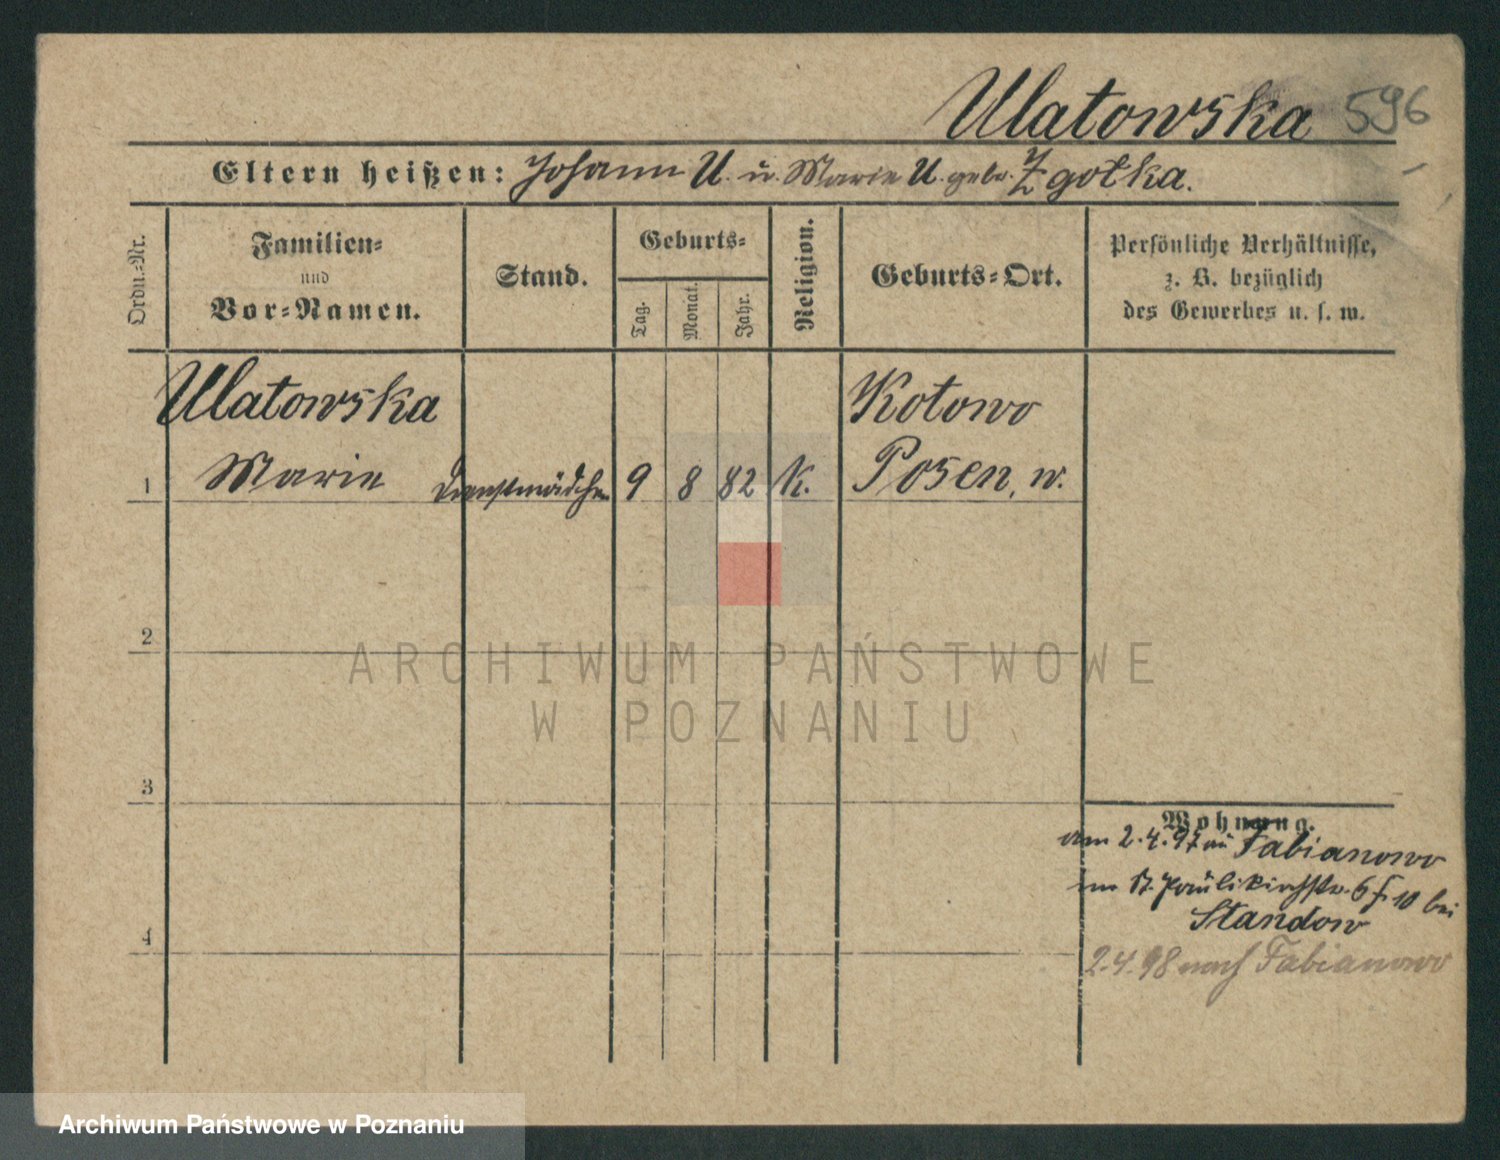 Ulatowska 596
Eltern heißen: Johann U. u. Marie U. geb. Zgotka.
Ordn.-Nr.
Familien-
und
Vor-Namen.
Stand.
Geburts-
Tag.
Monat.
Jahr.
Religion.
Geburts-Ort.
Persönliche Verhältnisse,
z. B. bezüglich
des Gewerbes u. s. w.
Ulatowska
Kotowo
1 Marie Dienstmädchen 9 8 82 K. Posen, w.
2
ARCHIWUM PAŃSTWOWE
W POZNANIU
3
Wohnung.
am 2.4.97 Fabianowo
St. Paulikirchstr. 6 10 bei
Standow
4
2.4.98 nach Fabianowo
Archiwum Państwowe w Poznaniu